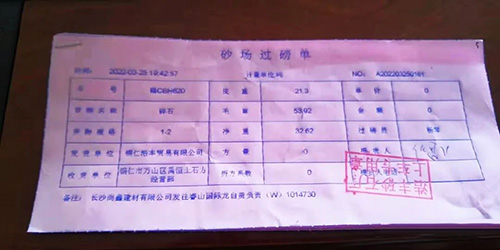 砂场过磅单
时间: 2022-03-25 19:42:57 计量单位吨 NO: A202203250191
车号 赣CBM620 皮重 21.3 单价 0
货物名称 碎石 毛重 53.92 金额 0
货物规格 1-2 净重 32.62 过磅员
发货单位 铜仁浩丰贸易有限公司 方量 0
收货单位 铜仁市万山区禹恒土石方经营部 折方系数 0
备注: 长沙尚鑫建材有限公司发往睿山国际龙自提负责 (W) 1014730